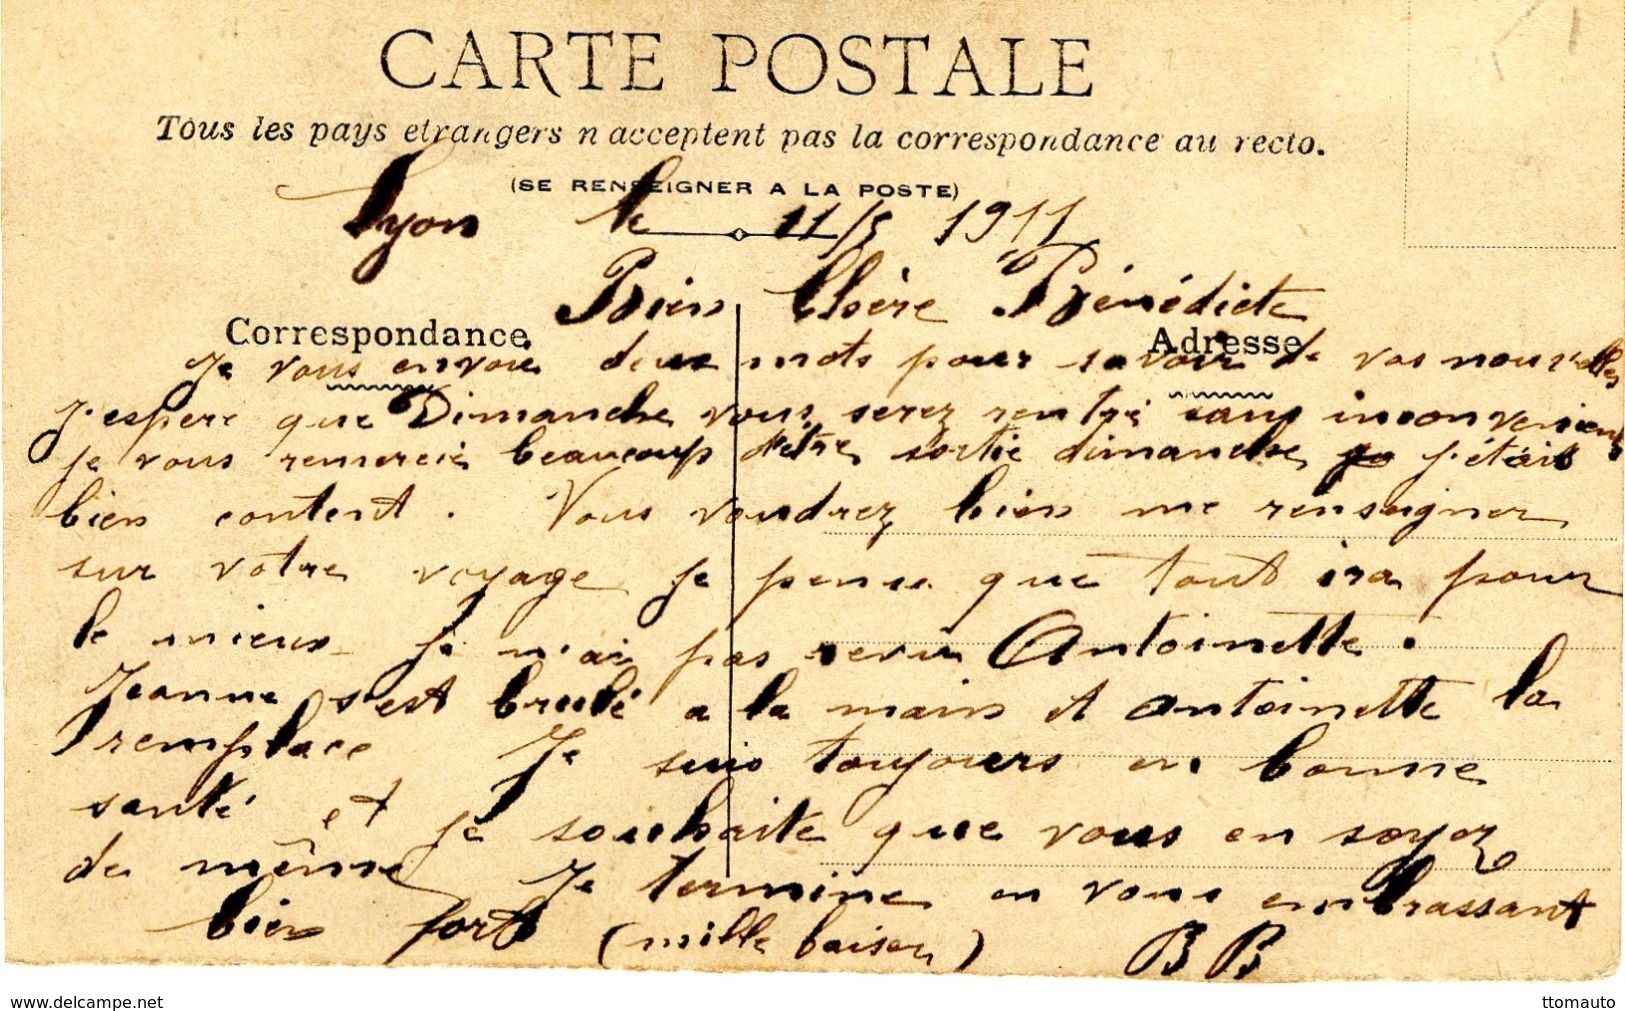 CARTE POSTALE
Tous les pays etrangers n acceptent pas la correspondance au recto.
(SE RENSEIGNER A LA POSTE)
Lyon le 11/5 1911
Bien Chère Bénédicte
Correspondance Adresse
Je vous envoie deux mots pour savoir de vos nouvelles
J'espere que Dimanche vous serez rentré sans inconvenient
je vous remercie beaucoup d'être sortie dimanche j'étais
bien content. Vous voudrez bien me renseigner
sur votre voyage je pense que tout ira pour
le mieux je n'ai pas revu Antoinette.
Jeanne s'est brulé a la main et Antoinette la
remplace Je suis toujours en bonne
santé et je souhaite que vous en soyez
de même Je termine en vous embrassant
bien fort (mille baiser)
B B
www.delcampe.net
ttomauto